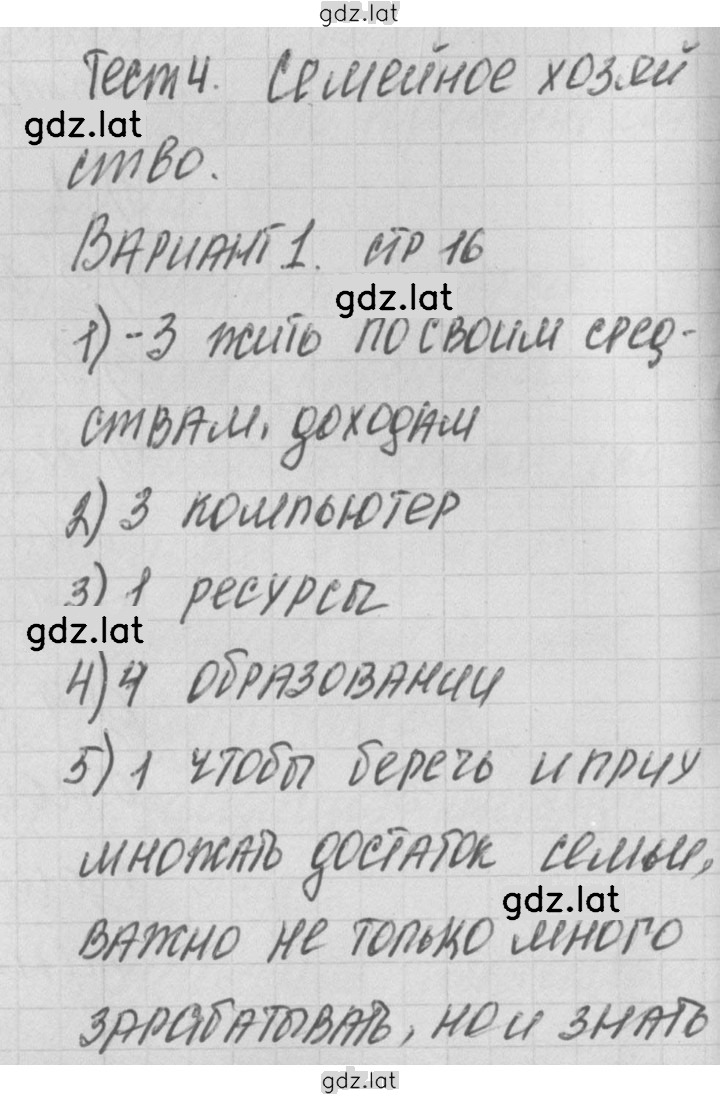 gdz.lat
Тест 4. Семейное хозяй
gdz.lat
ство.
Вариант 1. стр 16
gdz.lat
1) - 3 жить по своим сред-
ствам, доходам
2) 3 компьютер
3) 1 ресурсы
gdz.lat
4) 4 образовании
5) 1 чтобы беречь и приу
множать достаток семьи,
gdz.lat
важно не только много
зарабатывать, но и знать
gdz.lat